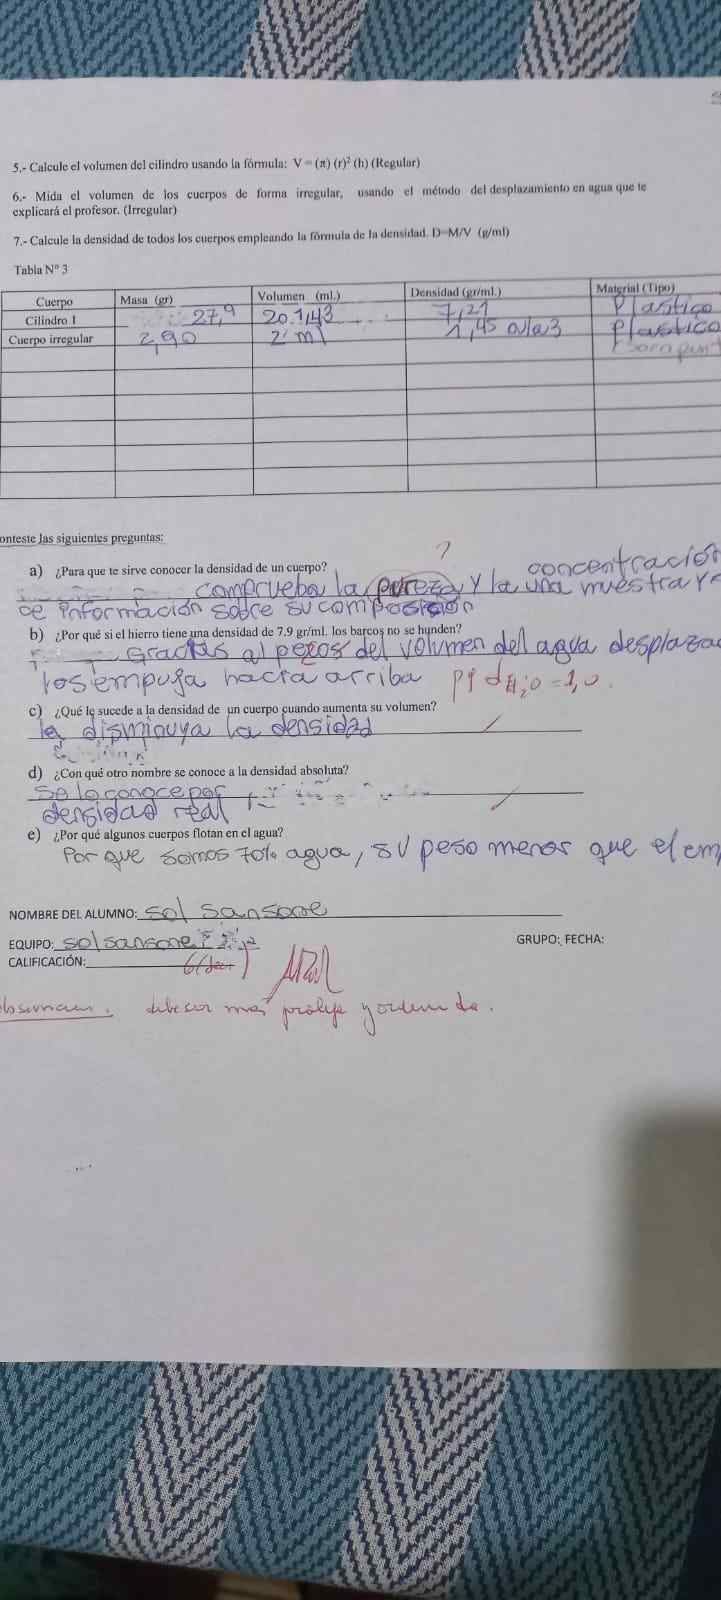 5.- Calcule el volumen del cilindro usando la fórmula: V = (π) (r)² (h) (Regular)
6.- Mida el volumen de los cuerpos de forma irregular, usando el método del desplazamiento en agua que te
explicará el profesor. (Irregular)
7.- Calcule la densidad de todos los cuerpos empleando la fórmula de la densidad. D=M/V (g/ml)
Tabla Nº 3
Cuerpo Masa (gr) Volumen (ml.) Densidad (gr/ml.) Material (Tipo)
Cilindro 1 27,9 20.1,43 7,21 Plastico
Cuerpo irregular 2,90 2 ml 1,45 Plastico
onteste las siguientes preguntas:
?
a) ¿Para que te sirve conocer la densidad de un cuerpo? concentración
comprueba la pureza y la una muestra y
de información sobre su composición
b) ¿Por qué si el hierro tiene una densidad de 7.9 gr/ml. los barcos no se hunden?
Gracias al pesos del volumen del agua desplaza
los empuja hacia arriba
c) ¿Qué le sucede a la densidad de un cuerpo cuando aumenta su volumen?
la disminuya la densidad
d) ¿Con qué otro nombre se conoce a la densidad absoluta?
Se lo conoce por
densidad real
e) ¿Por qué algunos cuerpos flotan en el agua?
Por que somos 70% agua, su peso menor que el em
NOMBRE DEL ALUMNO: sol sansone
EQUIPO: sol sansone GRUPO: FECHA:
CALIFICACIÓN: 6 (seis)
debe ser más prolija y ordenada.